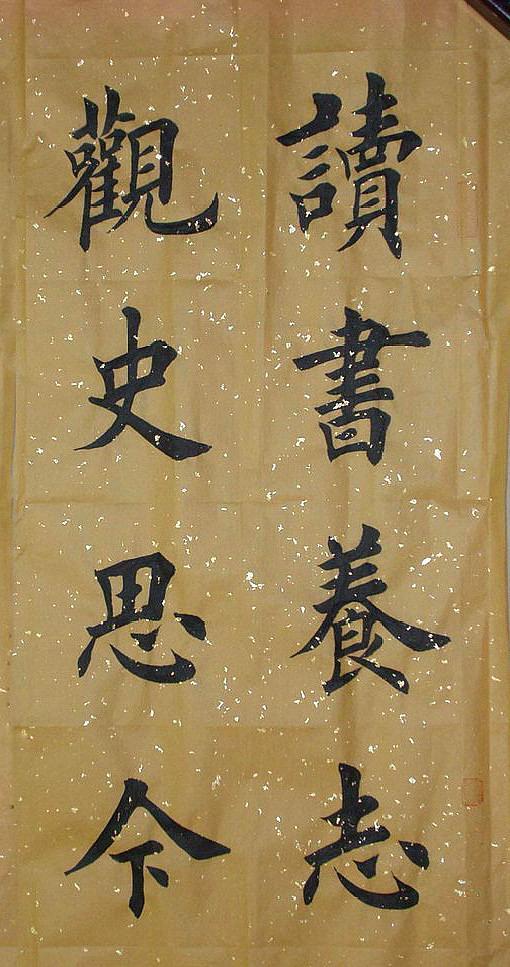 讀書養志
觀史思今